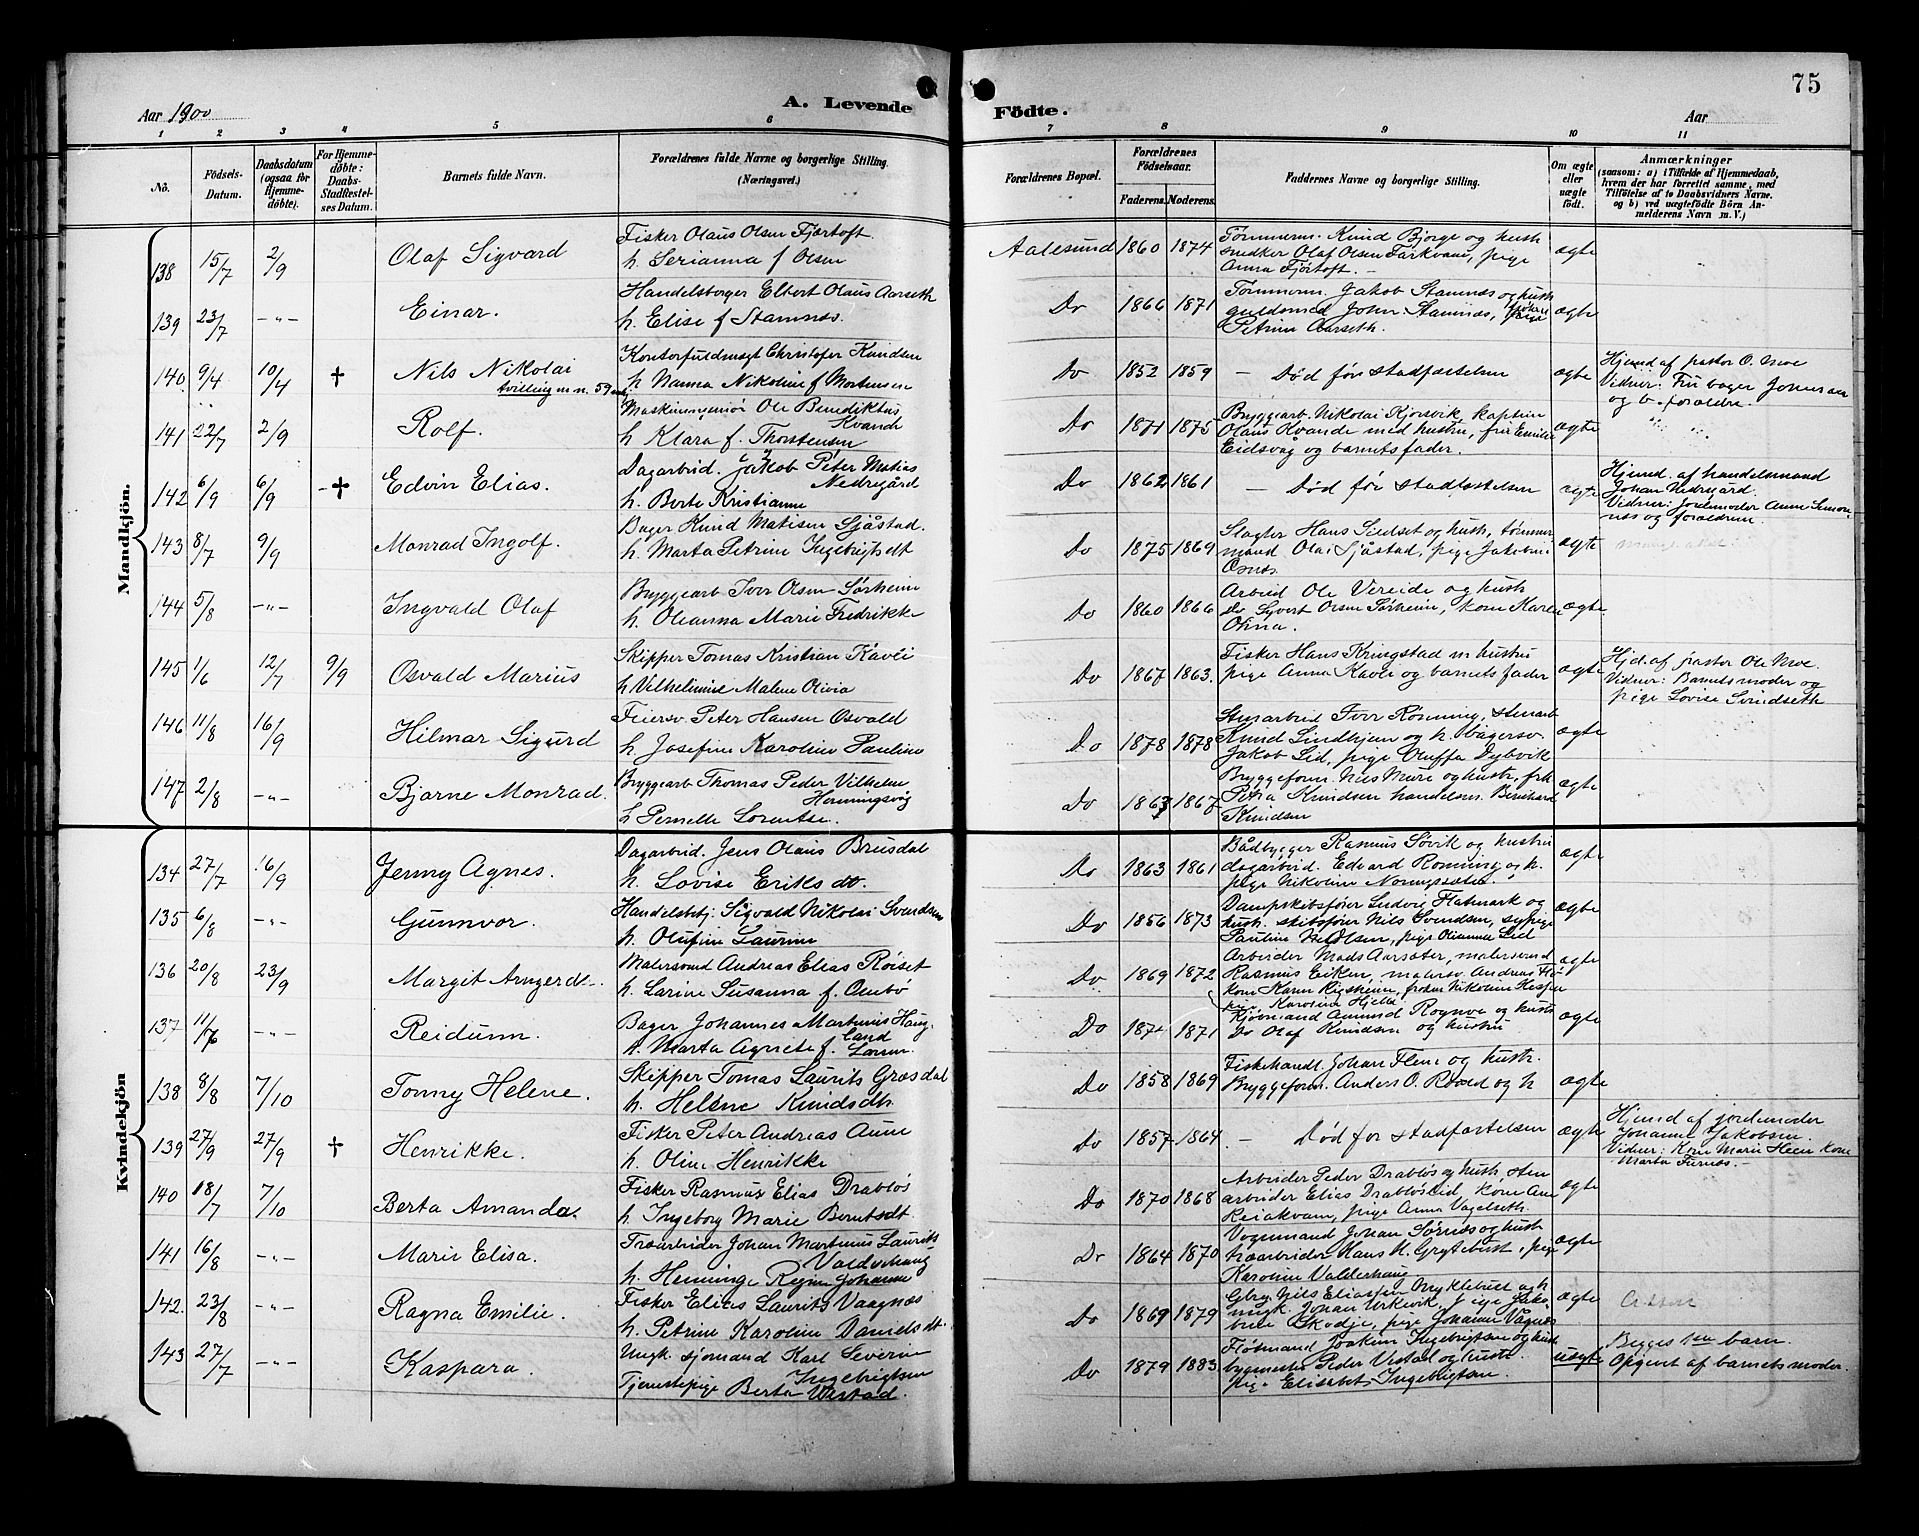 75
Aar 1900
A. Levende
Födte.
Aar
1 2 3 4 5 6 7 8 9 10 11
No.
Födsels-Datum.
Daabsdatum (ogsaa for Hjemme-döbte).
For Hjemme-döbte: Daabs-Stadfæstelses Datum.
Barnets fulde Navn.
Forældrenes fulde Navne og borgerlige Stilling.
(Næringsvei.)
Forældrenes Bopæl.
Forældrenes Födselsaar.
Faderens. Moderens.
Faddernes Navne og borgerlige Stilling.
Om ægte eller uægte födt.
Anmærkninger
(saasom: a) i Tilfælde af Hjemmedaab,
hvem der har forrettet samme, med
Tilföielse af to Daabsvidners Navne.
og b) ved uægtefödte Börn An-
melderens Navn m. V.)
Mandkjön.
138 15/7 2/9 Olaf Sigvard
Fisker Olaus Olsen Fjørtoft
h. Serianna f Olsen
Aalesund 1860 1874
Tømmerm. Knud Bjørge og hust
snedker Olaf Olsen Farkvam, pige
Anna Fjørtoft. —
ægte
139 23/7 -"- Einar.
Handelsborger Elbert Olaus Aarseth
h. Elise f Stamnes.
Do 1866 1871
Tømmerm. Jakob Stamnes og hust
guldsmed John Stamnes, pige
Petrine Aarseth.
ægte
140. 9/4 10/4 † Nils Nikolai
tvilling m n. 59
Kontorfuldmegt Christofer Knudsen
h Nanna Nikoline f Mortensen
Do 1852 1859
— Død før stadfæstelsen
ægte
Hjemd af pastor O. Moe
Vidner: Fru bager Johnsen
og b. forældre.
141 22/7 2/9 Rolf.
Maskiningeniør Ole Benediktus Kvande
h Klara f. Thorstensen
Do 1871 1875
Bryggearb. Nikolai Kjorsvik, kaptein
Olaus Kvande med hustru, frk Emilie
Eidsvåg og barnets fader.
ægte
142 6/9 6/9 -† Edvin Elias.
Dagarbeid. Jakob Peter Matias Nedregård
h. Berte Kristianne
Do 1862 1861
— Død før stadfæstelsen
ægte
Hjemd. af handelsmand
Johan Nedregård.
Vidner: Jordemoder Anne Simon-
nes og forældrene.
143 8/7 9/9 Monrad Ingolf.
Bager Knud Matisen Sjåstad.
h. Marta Petrine Ingebrigtsdt
Do 1875 1869
Slagter Hans Sildset og hust, tømmer
mand Olai Sjåstad, pige Jakobine
Osnes.
ægte
144 5/8 -"- Ingvald Olaf
Bryggearb Iver Olsen Sørheim
h. Oleanna Marie Fredrikke
Do 1860 1866
Arbeid Ole Vereide og hust
do Syvert Olsen Sørheim, kone Maren
Ohna.
ægte.
145 1/6 12/7 9/9 Osvald Marius
Skipper Tomas Kristian Kavli
h Vilhelmine Malene Olivia
Do 1867 1863.
Fisker Hans Kringstad m hustru
pige Anna Kavli og barnets fader
ægte
Hjd. af pastor Ole Moe.
Vidner: Barnets moder og
pige Lovise Svindseth
146 11/8 16/9 Hilmar Sigurd
Feiersv. Peter Hansen Osvald
h. Josefine Karoline Pauline
Do 1878 1878
Stenarbeid Iver Rønning, stenarb
Knud Lindhjem og h. bagersv.
Jakob Lid, pige Oluffa Dybvik
ægte
147 2/8 -"- Bjarne Monrad.
Bryggearb Thomas Peder Vilhelm Henningsvig
h Pernelle Lorentse.
Do 1863 1867
Bryggeform. Nils Mure og hust, frk
Petra Knudsen handelsm. Bernhard
Knudsen
ægte
Kvindekjön
134 27/7 16/9 Jenny Agnes.
Dagarbeid. Jens Olaus Brusdal
h. Lovise Eriks dt.
Do 1863 1861
Bådbygger Rasmus Søvik og hustru
dagarbeid. Edvard Rønning og h.
pige Nikoline Nøringsæter.
ægte
135 6/8 -"- Gunnvor.
Handelsbetj: Sigvald Nikolai Svendsen
h. Olufine Laurine
Do 1856 1873
Dampskibsfører Ludvi Flatmark og
hust. skibsfører Nils Svendsen, sypige
Pauline Olsen, pige Oleanna Lid
ægte
136 20/8 23/9 Margit Arngerd.
Malersvend Andreas Elias Røiset
h. Larine Susanna f. Ombø
Do 1869 1872
Arbeider Mads Aarsæter, malersvend
Rasmus Eiken, malersv. Andreas
pige Karolina Hjelle
ægte
137 11/6 -"- Reidunn.
Bager Johannes Martinus Haugland
h. Marta Agnete f. Lorem.
Do 1871 1871
Kjøbmand Amund Rogne og hust
do Olaf Knudsen og hustru
ægte
138 8/8 7/10 Tonny Helene.
Skipper Tomas Laurits Græsdal
h. Helene Knudsdt.
Do 1858 1869
Fiskehandl. Johan Flem og hust.
Bryggeform. Anders O. Roald og h
ægte
139 27/9 27/9 † Henrikke.
Fisker Peter Andreas Aune
h. Oline Henrikke
Do 1857 1864
— Død før stadfæstelsen
ægte
Hjemd af jordemoder
Johanne Jakobsen.
Vidner: Kone Marie Heen kone
Marta Furnes.
140 18/7 7/10 Berta Amanda.
Fisker Rasmus Elias Drabløs
h. Ingeborg Marie Berntsdt.
Do 1870 1868
Arbeider Peder Drabløs og hust, sten
arbeider Elias Drabløs kone Ane
Reiakvam, pige Anna Vagelseth.
ægte
141 16/8 -"- Marie Elisa.
Træarbeider Johan Martinus Laurits Valderhaug
h. Henninge Regine Johanne
Do 1864 1870
Vognmand Johan Sørnes og hust
træarbeider Hans M. Grytebust, pige
Karoline Valderhaug
ægte
142. 23/8 -"- Ragna Emilie.
Fisker Elias Laurits Vaagnæs
h. Petrine Karoline Danielsdt.
Do 1869 1879
Gbrg. Nils Eliassen Myklebust og h
ungk. Johan Urkevik, pige Jako-
bine Skodje, pige Johanne Vågnes
ægte
143 27/7 -"- Kaspara.
Ungk. sjømand Karl Severin Ingebrigtsen
Tjenestepige Berta Vestad.
Do 1879 1883
Fløtmand Joakim Ingebrigtsen og hust
bygmester Peder Vestad og hust.
pige Elisabet Ingebrigtsen.
uægte
Begges 1ste barn.
Opgivet af barnets moder.